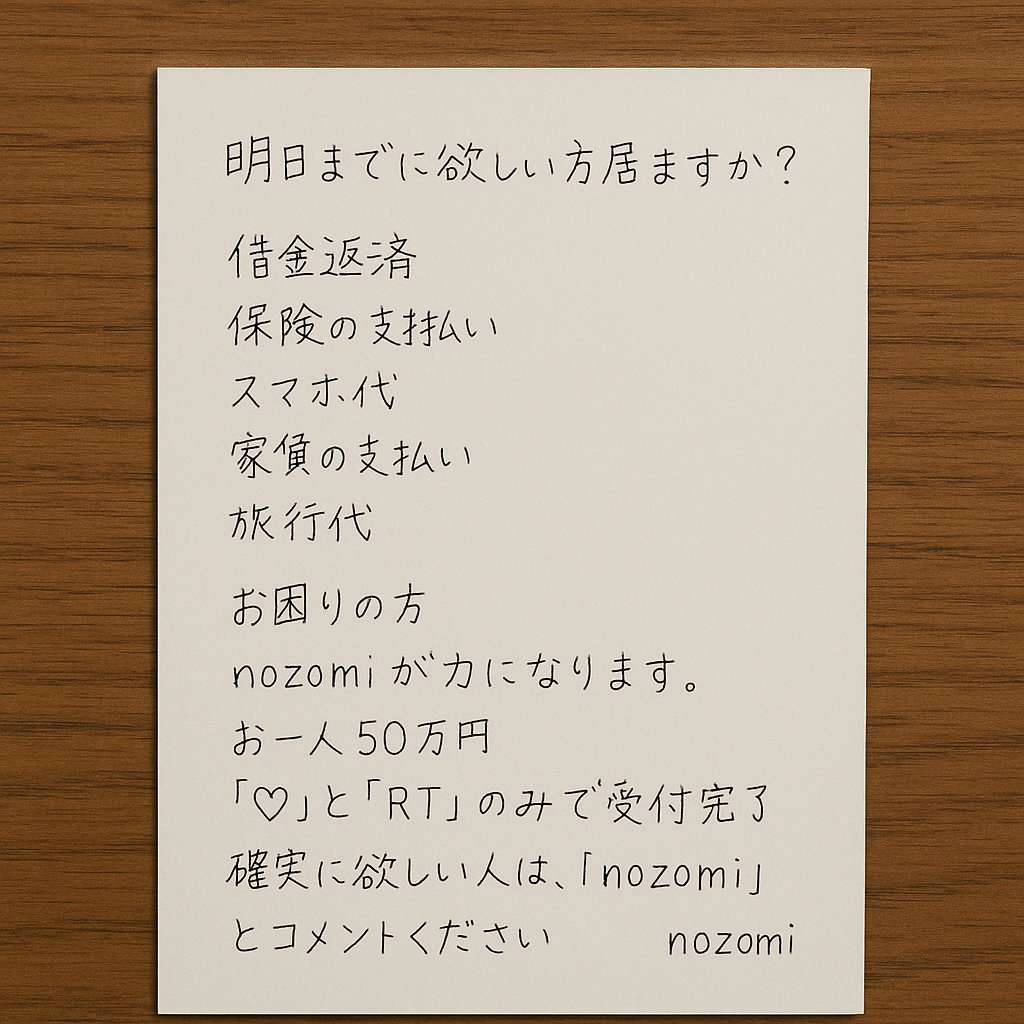 明日までに欲しい方居ますか？
借金返済
保険の支払い
スマホ代
家賃の支払い
旅行代
お困りの方
nozomiが力になります。
お一人50万円
「♡」と「RT」のみで受付完了
確実に欲しい人は、「nozomi」
とコメントください nozomi